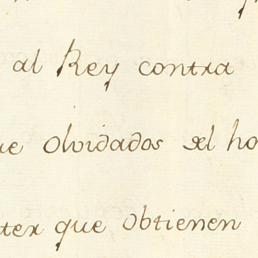 al Rey contra
ue olvidados del ho
ter que obtienen